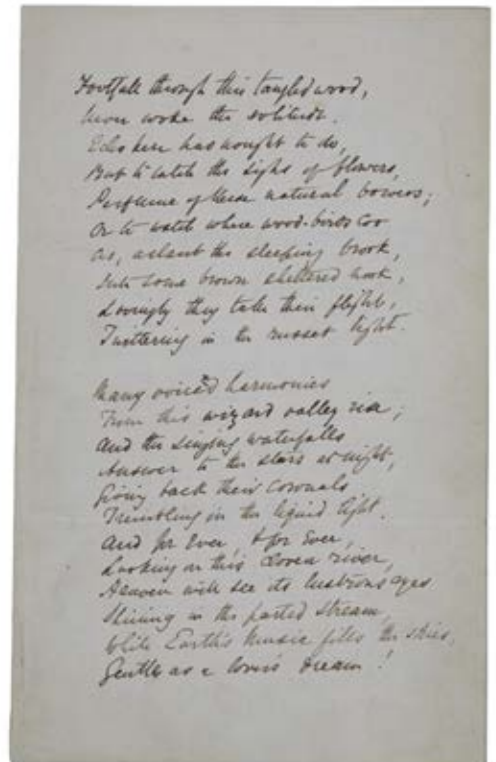 Footfall through this tangled wood,
Never woke the solitude.
Echo here has nought to do,
But to catch the sighs of flowers,
Perfume of these natural bowers;
Or to watch where wood-birds coo
As, aslant the sleeping brook,
Into some brown sheltered nook,
Lovingly they take their flight,
Twittering in the russet light.
Many voiced harmonies
From this wizard valley rise;
And the singing waterfalls
Answer to the stars at night,
Giving back their coronals
Trembling in the liquid light.
And for Ever, & for Ever,
Looking on this cloven river,
Heaven will see its lustrous eyes
Shining in the parted stream,
While Earth's Music fills the skies,
Gentle as a lover's dream!